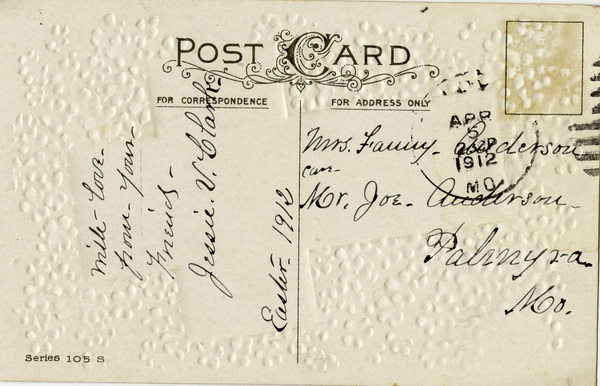 POST CARD
FOR CORRESPONDENCE
FOR ADDRESS ONLY
With- Love-
from- Your-
Friend-
Jessie. V. Clark
Easter- 1912
APR
5
1912
MO.
Mrs. Fanny- Anderson
Mr. Joe- Anderson-
Palmyra.
Mo.
Series 105 S